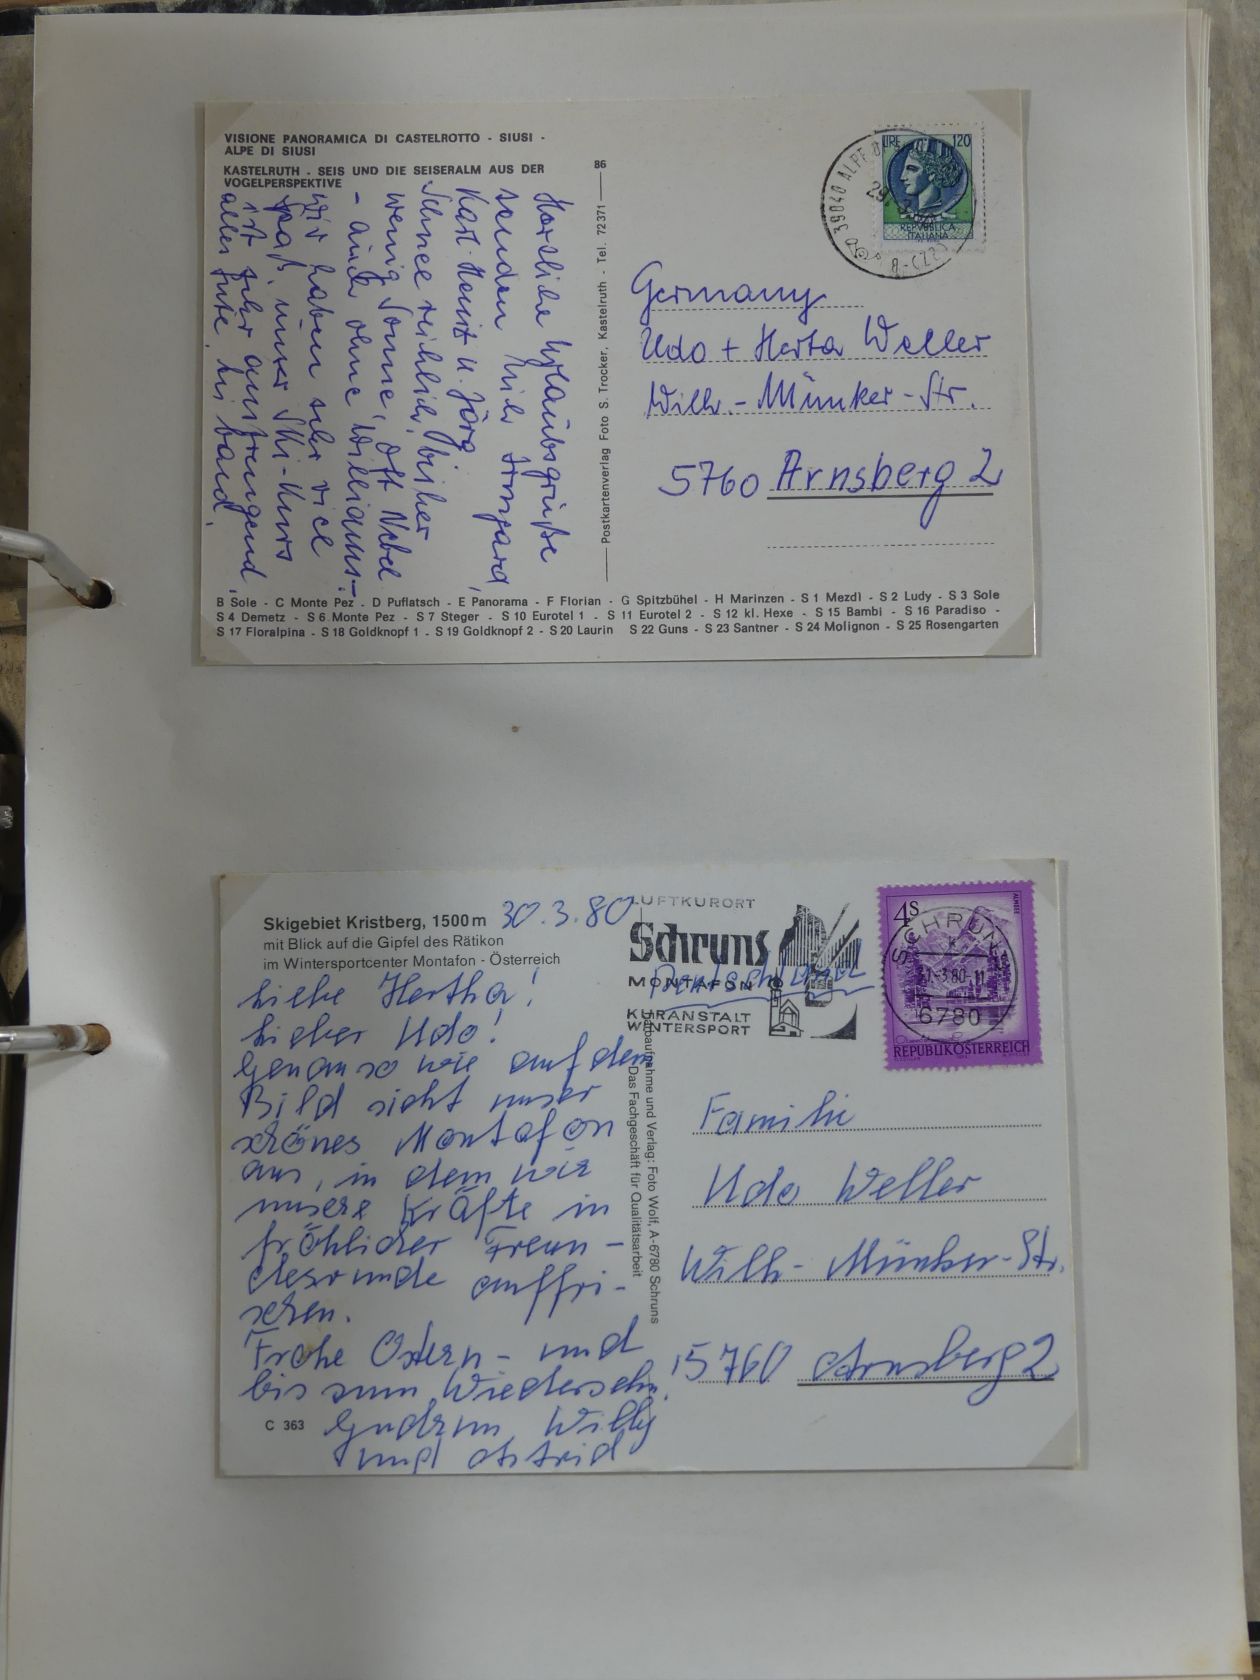 VISIONE PANORAMICA DI CASTELROTTO - SIUSI -
ALPE DI SIUSI
KASTELRUTH - SEIS UND DIE SEISERALM AUS DER
VOGELPERSPEKTIVE
Herzliche Urlaubsgrüße
senden Irmgard,
Karl-Heinz u. Jörg
Schnee reichlich, bisher
wenig Sonne, oft Nebel
- auch ohne
wir haben sehr viel
Spaß, unser Ski-Kurs
ist sehr anstrengend.
alles Gute, bis bald.
86
Postkartenverlag Foto S. Trocker, Kastelruth - Tel. 72371
LIRE 120
REPUBBLICA
ITALIANA
39040 ALPE DI
Germany
Udo + Herta Weller
Wilh.-Münker-Str.
5760 Arnsberg 2
B Sole - C Monte Pez - D Puflatsch - E Panorama - F Florian - G Spitzbühel - H Marinzen - S 1 Mezdl - S 2 Ludy - S 3 Sole
S 4 Demetz - S 6 Monte Pez - S 7 Steger - S 10 Eurotel 1 - S 11 Eurotel 2 - S 12 kl. Hexe - S 15 Bambi - S 16 Paradiso -
S 17 Floralpina - S 18 Goldknopf 1 - S 19 Goldknopf 2 - S 20 Laurin S 22 Guns - S 23 Santner - S 24 Molignon - S 25 Rosengarten
Skigebiet Kristberg, 1500 m 30.3.80
mit Blick auf die Gipfel des Rätikon
im Wintersportcenter Montafon - Österreich
Liebe Hertha!
Lieber Udo!
Genau so wie auf dem
Bild sieht unser
schönes Montafon
aus, in dem wir
unsere Kräfte in
fröhlicher Freun-
desrunde auffri-
schen.
Frohe Ostern - und
bis zum Wiedersehn!
Gudrun Willy
und Astrid
C 363
Farbaufnahme und Verlag: Foto Wolf, A-6780 Schruns
Das Fachgeschäft für Qualitätsarbeit
LUFTKURORT
Schruns
MONTAFON
Deutschland
KURANSTALT
WINTERSPORT
4S
ALMSEE
SCHRUNS
6780
REPUBLIK ÖSTERREICH
Familie
Udo Weller
Wilh-Münker-Str.
5760 Arnsberg 2